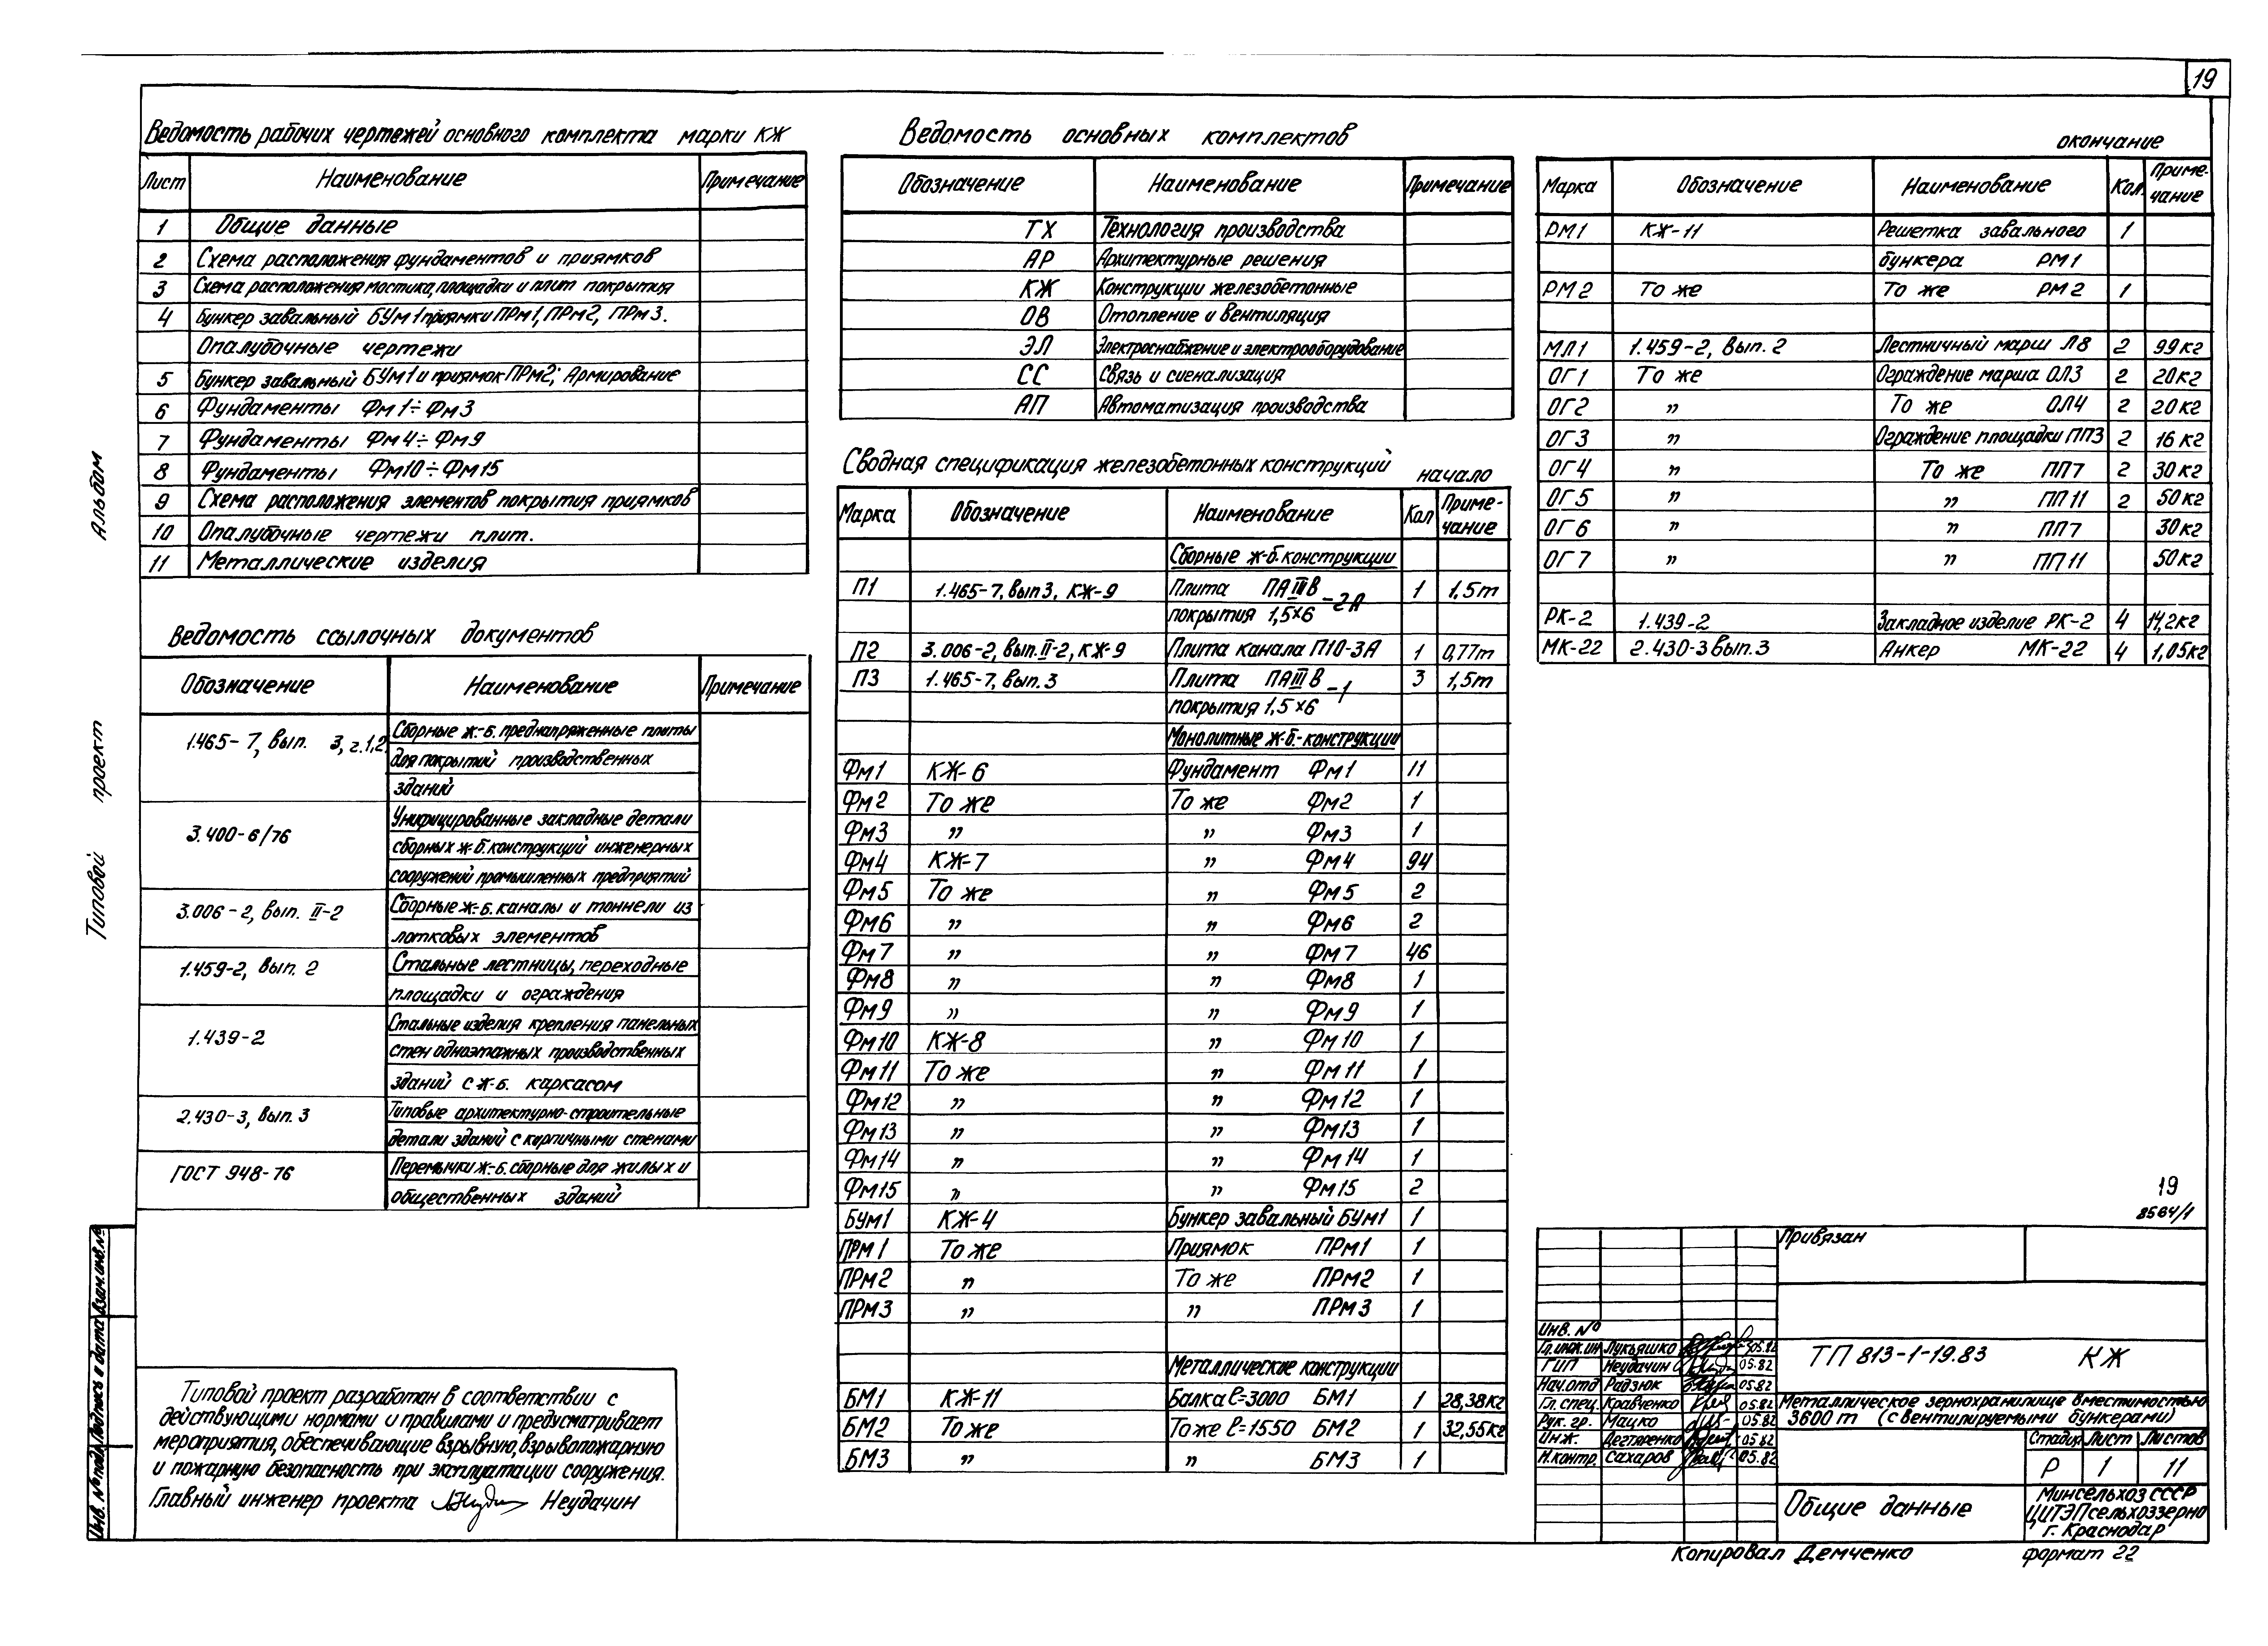 19
Ведомость рабочих чертежей основного комплекта марки КЖ
Лист Наименование Примечание
1 Общие данные
2 Схема расположения фундаментов и приямков
3 Схема расположения мостика, площадки и плит покрытия
4 Бункер завальный БУм1 приямки ПРм1, ПРм2, ПРм3.
Опалубочные чертежи
5 Бункер завальный БУм1 и приямок ПРм2; Армирование
6 Фундаменты Фм1÷Фм3
7 Фундаменты Фм4÷Фм9
8 Фундаменты Фм10÷Фм15
9 Схема расположения элементов покрытия приямков
10 Опалубочные чертежи плит.
11 Металлические изделия
Ведомость ссылочных документов
Обозначение Наименование Примечание
1.465-7, вып. 3, г.1,2 Сборные ж.-б. преднапряженные плиты
для покрытий производственных
зданий
3.400-6/76 Унифицированные закладные детали
сборных ж-б. конструкций инженерных
сооружений промышленных предприятий
3.006-2, вып. II-2 Сборные ж.-б. каналы и тоннели из
лотковых элементов
1.459-2, вып. 2 Стальные лестницы, переходные
площадки и ограждения
1.439-2 Стальные изделия крепления панельных
стен одноэтажных производственных
зданий с ж-б. каркасом
2.430-3, вып. 3 Типовые архитектурно-строительные
детали зданий с кирпичными стенами
ГОСТ 948-76 Перемычки ж.-б. сборные для жилых и
общественных зданий
Типовой проект разработан в соответствии с
действующими нормами и правилами и предусматривает
мероприятия, обеспечивающие взрывную, взрывопожарную
и пожарную безопасность при эксплуатации сооружения.
Главный инженер проекта Неудачин
Ведомость основных комплектов
Обозначение Наименование Примечание
ТХ Технология производства
АР Архитектурные решения
КЖ Конструкции железобетонные
ОВ Отопление и вентиляция
ЭЛ Электроснабжение и электрооборудование
СС Связь и сигнализация
АП Автоматизация производства
Сводная спецификация железобетонных конструкций начало
Марка Обозначение Наименование Кол Приме-
чание
Сборные ж-б. конструкции
П1 1.465-7, вып 3, КЖ-9 Плита ПАIIIВ -2А 1 1,5т
покрытия 1,5×6
П2 3.006-2, вып. II-2, КЖ-9 Плита канала П10-3А 1 0,77т
П3 1.465-7, вып. 3 Плита ПАIIIВ -1 3 1,5т
покрытия 1,5×6
Монолитные ж-б.-конструкции
Фм1 КЖ-6 Фундамент Фм1 11
Фм2 То же То же Фм2 1
Фм3 " " Фм3 1
Фм4 КЖ-7 " Фм4 94
Фм5 То же " Фм5 2
Фм6 " " Фм6 2
Фм7 " " Фм7 46
Фм8 " " Фм8 1
Фм9 " " Фм9 1
Фм10 КЖ-8 " Фм10 1
Фм11 То же " Фм11 1
Фм12 " " Фм12 1
Фм13 " " Фм13 1
Фм14 " " Фм14 1
Фм15 " " Фм15 2
БУм1 КЖ-4 Бункер завальный БУм1 1
ПРм1 То же Приямок ПРм1 1
ПРм2 " То же ПРм2 1
ПРм3 " " ПРм3 1
Металлические конструкции
БМ1 КЖ-11 Балка ℓ=3000 БМ1 1 28,38кг
БМ2 То же То же ℓ=1550 БМ2 1 32,55кг
БМ3 " " БМ3 1
окончание
Марка Обозначение Наименование Кол. Приме-
чание
РМ1 КЖ-11 Решетка завального 1
бункера РМ1
РМ2 То же То же РМ2 1
МЛ1 1.459-2, вып. 2 Лестничный марш Л8 2 99кг
ОГ1 То же Ограждение марша ОЛ3 2 20кг
ОГ2 " То же ОЛ4 2 20кг
ОГ3 " Ограждение площадки ПП3 2 16кг
ОГ4 " То же ПП7 2 30кг
ОГ5 " " ПП11 2 50кг
ОГ6 " " ПП7 30кг
ОГ7 " " ПП11 50кг
РК-2 1.439-2 Закладное изделие РК-2 4 14,2кг
МК-22 2.430-3 вып.3 Анкер МК-22 4 1,05кг
19
8564/1
Привязан
Инв. №
Гл.инж.ин Лукьяшко 05.82
ГИП Неудачин 05.82
Нач.отд Радзюк 05.82
Гл. спец. Кравченко 05.82
Рук. гр. Мацко 05.82
Инж. Дегтяренко 05.82
Н.контр. Сахаров 05.82
ТП 813-1-19.83 КЖ
Металлическое зернохранилище вместимостью
3600т (с вентилируемыми бункерами)
Стадия Лист Листов
Р 1 11
Общие данные
Минсельхоз СССР
ЦИТЭПсельхоззерно
г. Краснодар
Копировал Демченко формат 22
Типовой проект Альбом
Инв. № подл. Подпись и дата Взам.инв.№